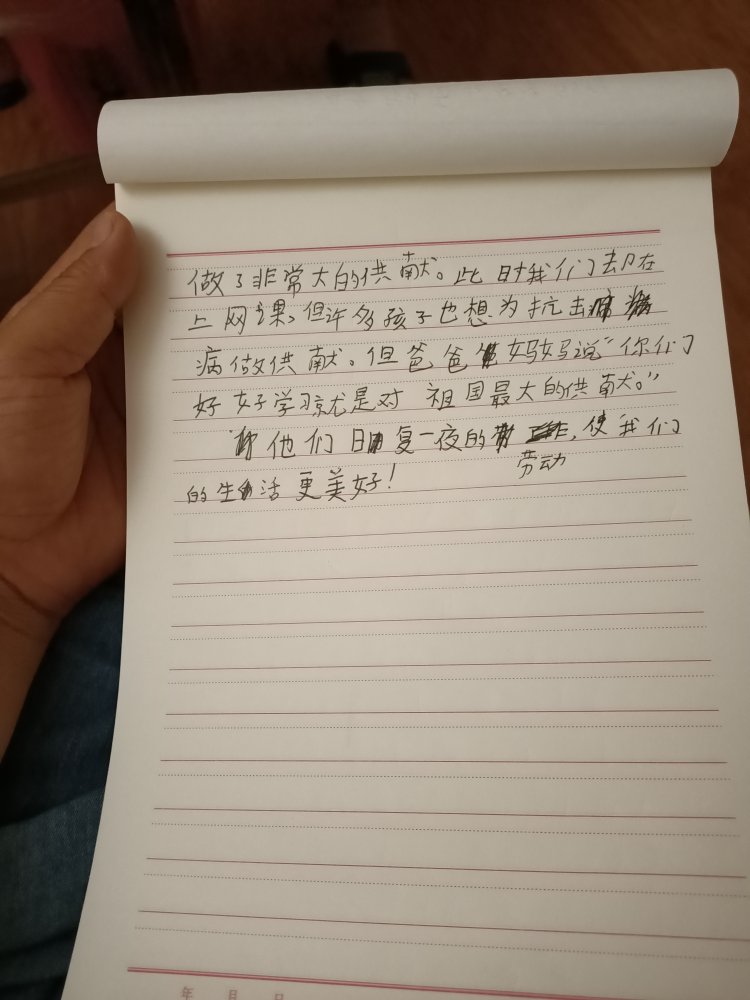 做了非常大的供献。此时我们却在
上网课,但许多孩子也想为抗击
病做供献。但爸爸妈妈说“你们
好好学习就是对祖国最大的供献。”
他们日复一夜的,使我们
劳动
的生活更美好!
年 月 日